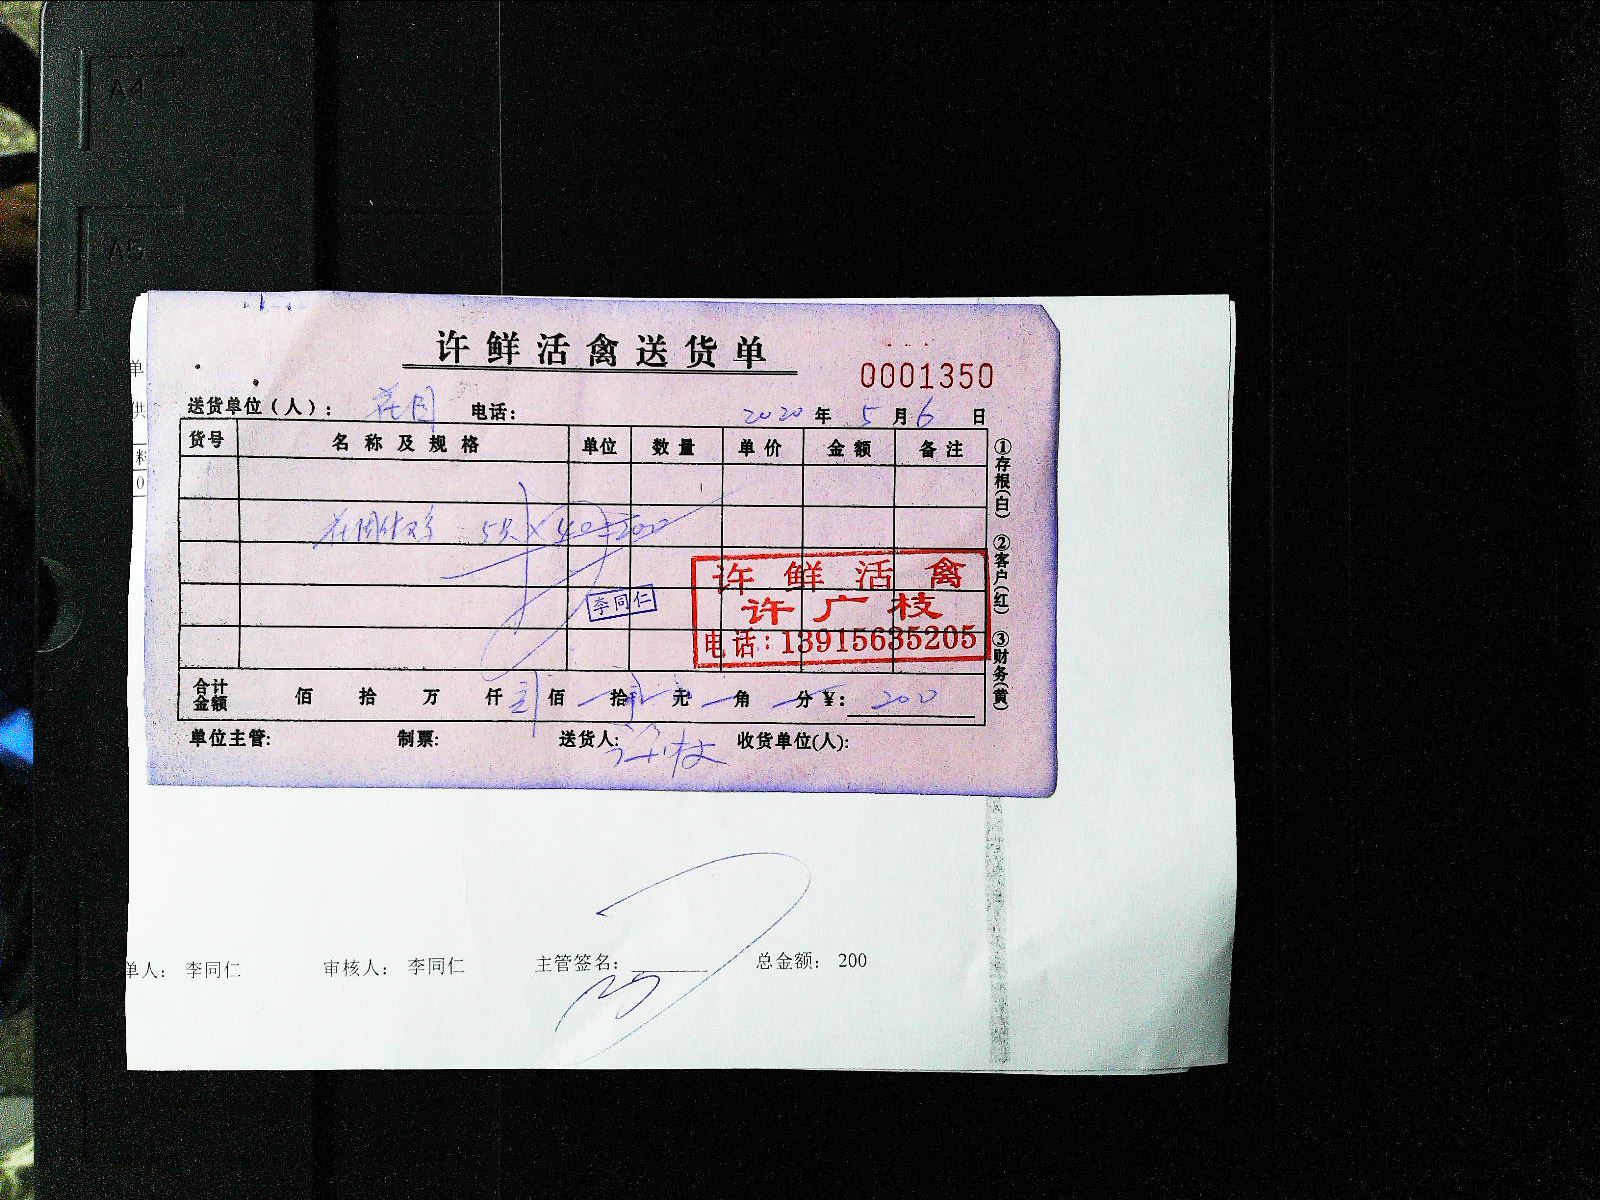 A4
A5
许鲜活禽送货单
0001350
单
送货单位（人）： 花园 电话：
2020 年 5 月 6 日
供
货号 名称及规格 单位 数量 单价 金额 备注
料
0
①存根(白) ②客户(红) ③财务(黄)
5只×40=200
李同仁
许鲜活禽
许广枝
电话:13915635205
合计金额 佰 拾 万 仟 贰 佰 拾 元 角 分 ¥: 200
单位主管: 制票: 送货人: 许广枝 收货单位(人):
单人： 李同仁 审核人： 李同仁 主管签名： 总金额： 200